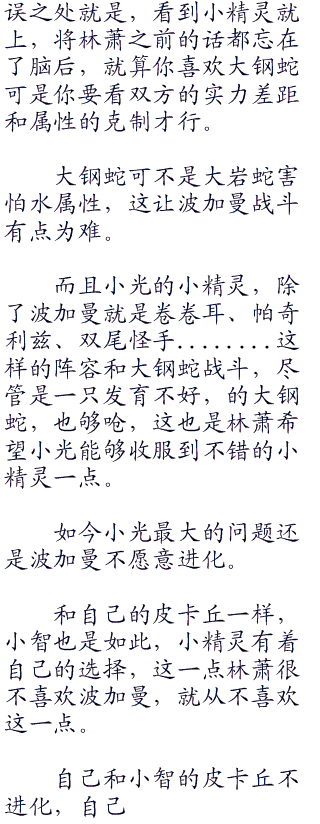 误之处就是，看到小精灵就
上，将林萧之前的话都忘在
了脑后，就算你喜欢大钢蛇
可是你要看双方的实力差距
和属性的克制才行。
大钢蛇可不是大岩蛇害
怕水属性，这让波加曼战斗
有点为难。
而且小光的小精灵，除
了波加曼就是卷卷耳、帕奇
利兹、双尾怪手........这
样的阵容和大钢蛇战斗，尽
管是一只发育不好，的大钢
蛇，也够呛，这也是林萧希
望小光能够收服到不错的小
精灵一点。
如今小光最大的问题还
是波加曼不愿意进化。
和自己的皮卡丘一样，
小智也是如此，小精灵有着
自己的选择，这一点林萧很
不喜欢波加曼，就从不喜欢
这一点。
自己和小智的皮卡丘不
进化，自己